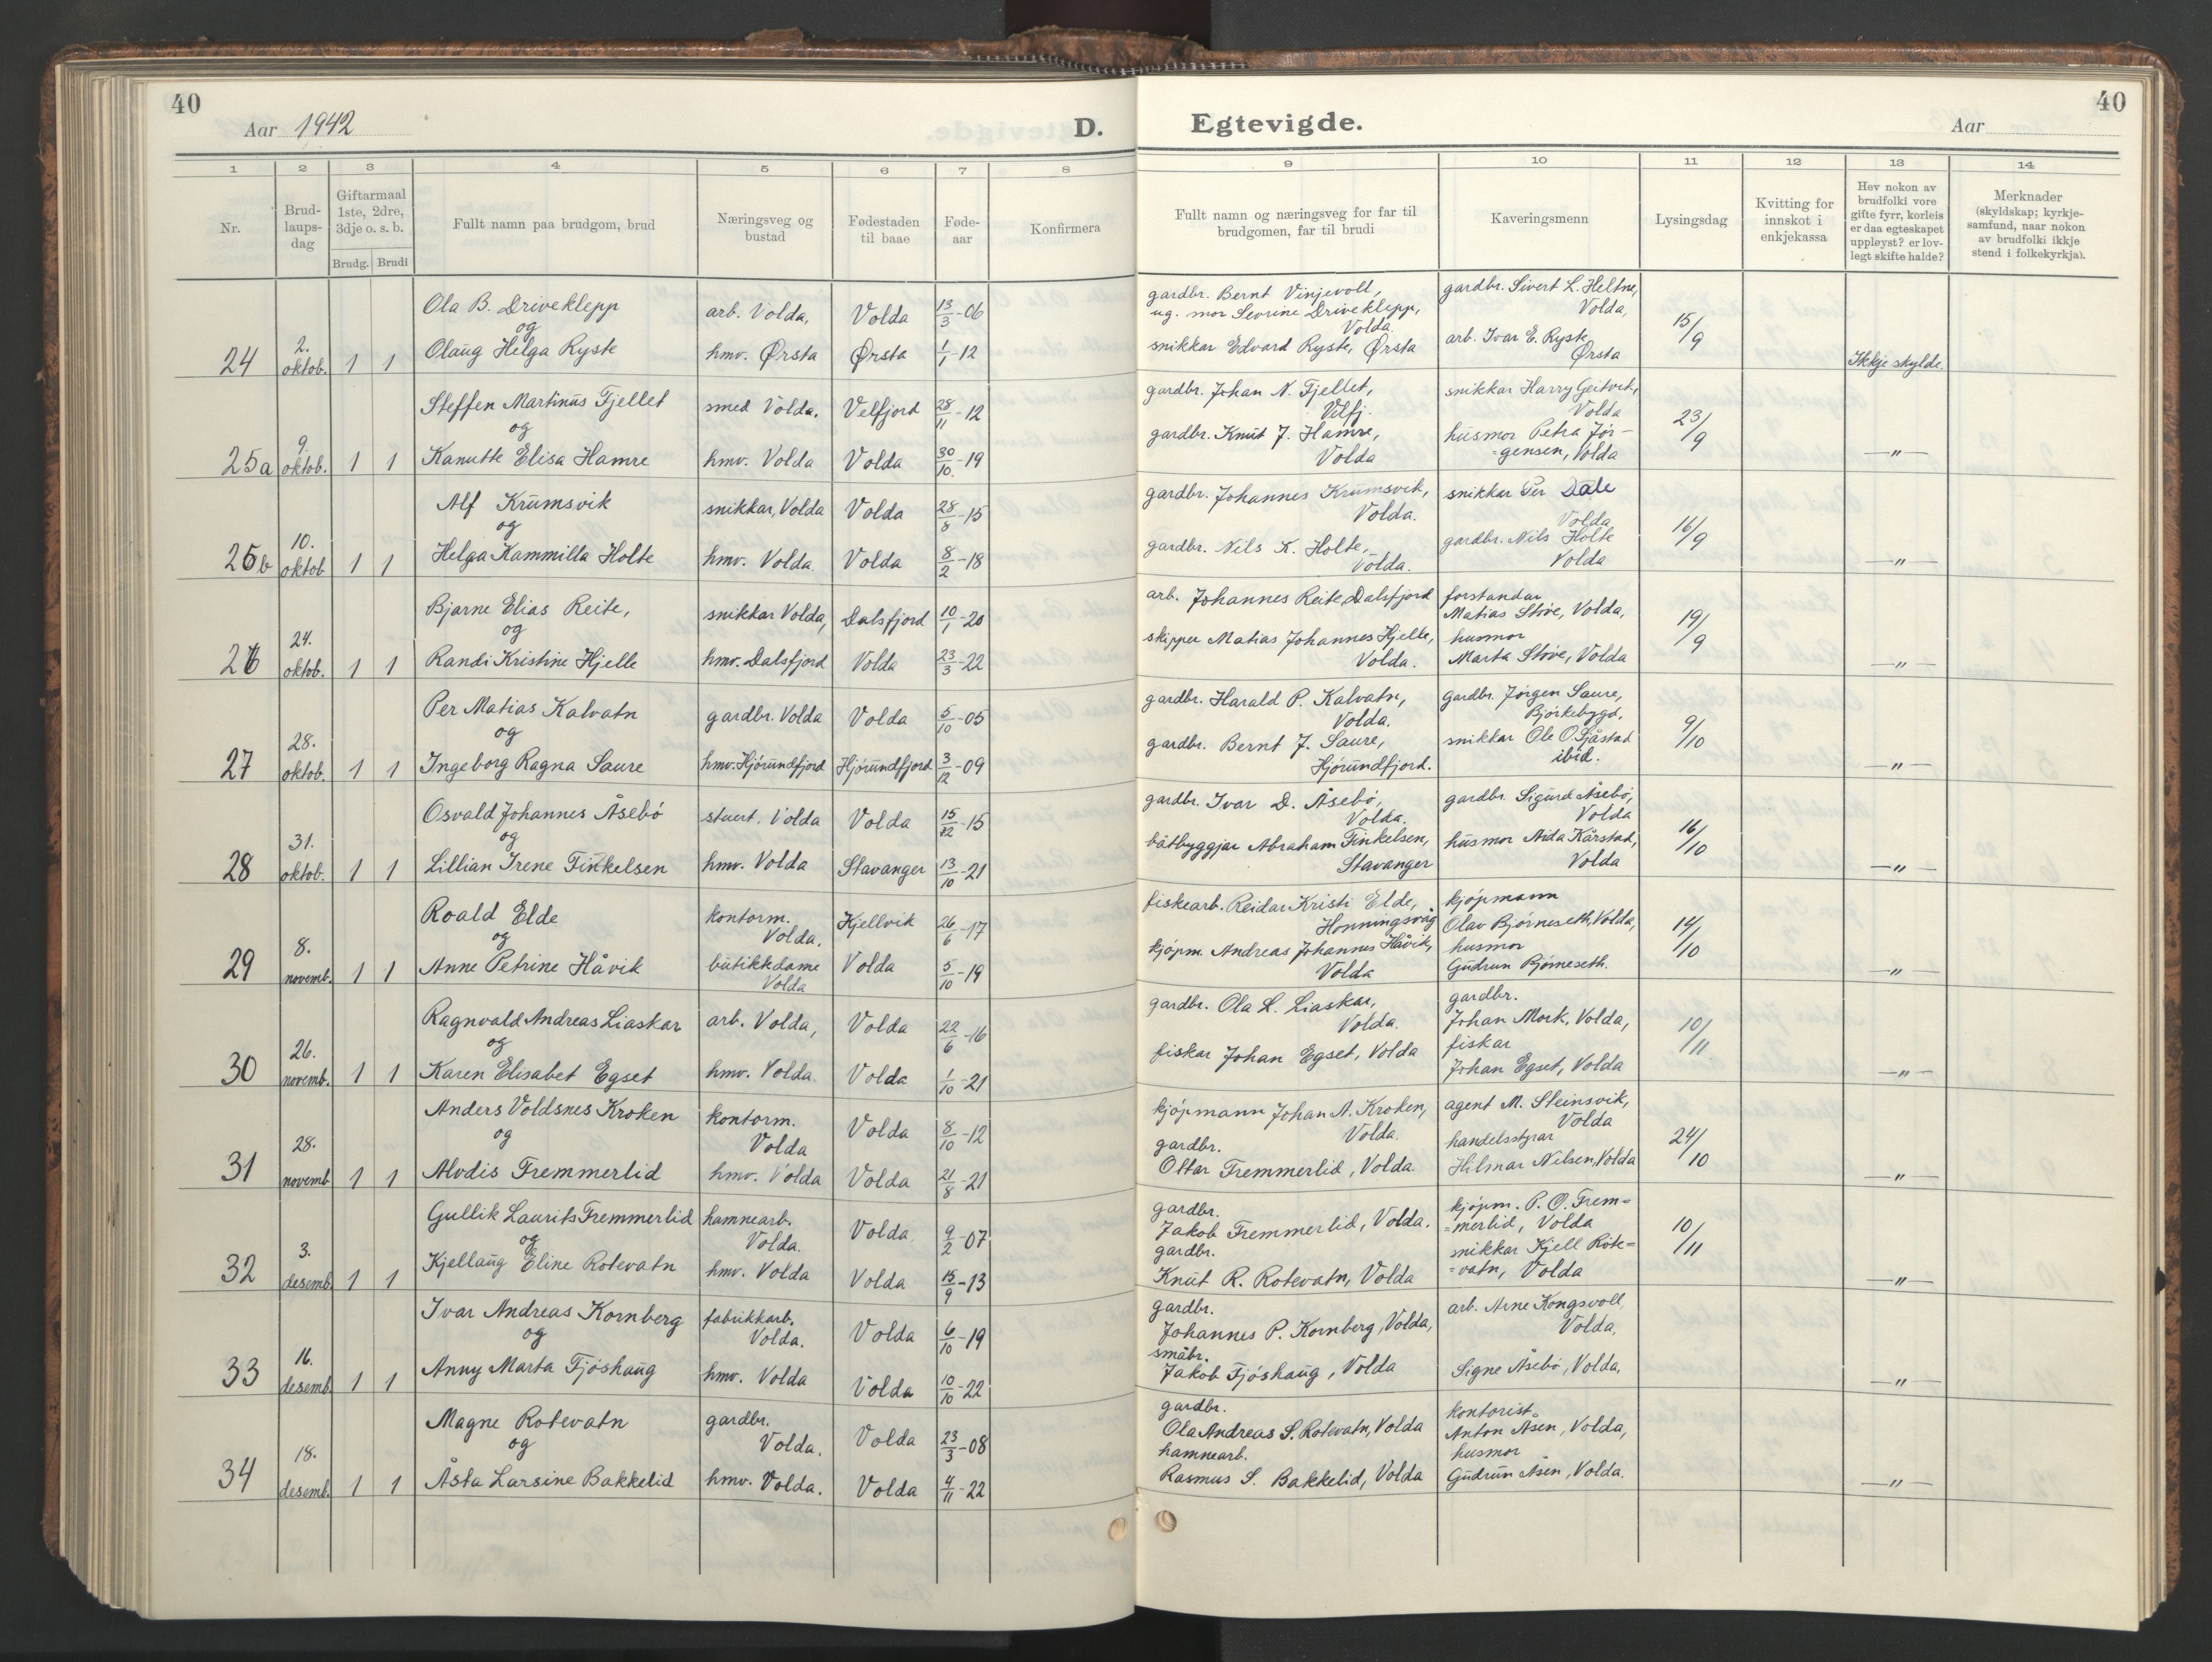 40
Aar 1942
D.
Egtevigde.
Aar
40
1 2 3 4 5 6 7 8 9 10 11 12 13 14
Nr.
Brud-
laups-
dag
Giftarmaal
1ste, 2dre,
3dje o. s. b.
Brudg. Brudi
Fullt namn paa brudgom, brud
Næringsveg og
bustad
Fødestaden
til baae
Føde-
aar
Konfirmera
Fullt namn og næringsveg for far til
brudgomen, far til brudi
Kaveringsmenn
Lysingsdag
Kvitting for
innskot i
enkjekassa
Hev nokon av
brudfolki vore
gifte fyrr, korleis
er daa egteskapet
uppleyst? er lov-
legt skifte halde?
Merknader
(skyldskap; kyrkje-
samfund, naar nokon
av brudfolki ikkje
stend i folkekyrkja).
24 2. oktob. 1 1
Ola B. Driveklepp arb. Volda, Volda 13/3-06
og
Olaug Helga Ryste hmv. Ørsta Ørsta 1/1-12
gardbr. Bernt Vinjevoll,
ug. mor Sevrine Driveklepp,
Volda.
snikkar Edvard Ryste, Ørsta
gardbr. Sivert L. Heltne,
Volda,
arb. Ivar E. Ryste
Ørsta
15/9
Ikkje skylde.
25a 9. oktob. 1 1
Steffen Martinus Fjellet smed Volda. Velfjord 28/11-12
og
Kanutte Elisa Hamre hmv. Volda Volda 30/10-19
gardbr. Johan N. Fjellet,
Velfj.
gardbr. Knut J. Hamre,
Volda
snikkar Harry Geitvik,
Volda
husmor Petra Jør-
=gensen, Volda
23/9
—"—
25b 10. oktob 1 1
Alf Krumsvik snikkar, Volda Volda 28/8-15
og
Helga Kammilla Holte hmv. Volda. Volda 8/2-18
gardbr. Johannes Krumsvik,
Volda.
gardbr. Nils K. Holte,
Volda.
snikkar Per Dale
Volda
gardbr. Nils Holte
Volda
16/9
—"—
26 24. oktob. 1 1
Bjarne Elias Reite, snikkar Volda, Dalsfjord 10/1-20
og
Randi Kristine Hjelle hmv. Dalsfjord Volda 23/3-22
arb. Johannes Reite, Dalsfjord
skipper Matias Johannes Hjelle,
Volda.
forstandar
Matias Støve, Volda,
husmor
Marta Støve, Volda
19/9
—"—
27 28. oktob. 1 1
Per Matias Kalvatn gardbr. Volda Volda 5/10-05
og
Ingeborg Ragna Saure hmv. Hjørundfjord Hjørundfjord 3/12-09
gardbr. Harald P. Kalvatn,
Volda.
gardbr. Bernt J. Saure,
Hjørundfjord.
gardbr. Jørgen Saure,
Bjørkebygd,
snikkar Ole O. Sjåstad
ibid.
9/10
—"—
28 31. oktob. 1 1
Osvald Johannes Åsebø stuert. Volda Volda 15/12-15
og
Lillian Irene Finkelsen hmv. Volda Stavanger 13/10-21
gardbr. Ivar D. Åsebø,
Volda.
båtbyggjar Abraham Finkelsen,
Stavanger
gardbr. Sigurd Åsebø,
Volda
husmor Aida Kårstad,
Volda
16/10
—"—
29 8. novemb. 1 1
Roald Elde kontorm. Kjellvik 26/6-17
Volda,
og
Anne Petrine Håvik butikkdame Volda 5/10-19
Volda
fiskearb. Reidar Kristi Elde,
Honningsvåg
kjøpm. Andreas Johannes Håvik,
Volda
kjøpmann
Olav Bjørneseth, Volda,
husmor
Gudrun Bjørneseth.
14/10
—"—
30 26. novemb. 1 1
Ragnvald Andreas Liaskar arb. Volda, Volda 22/6-16
og
Karen Elisabet Egset hmv. Volda. Volda 1/10-21
gardbr. Ola L. Liaskar,
Volda.
fiskar Johan Egset, Volda
gardbr.
Johan Mork, Volda,
fiskar
Johan Egset, Volda
10/11
—"—
31 28. novemb 1 1
Anders Voldsnes Kroken kontorm. Volda 8/10-12
Volda
og
Alvdis Fremmerlid hmv. Volda Volda 21/8-21
kjøpmann Johan A. Kroken,
Volda.
gardbr.
Oltar Fremmerlid, Volda.
agent M. Steinsvik,
Volda
handelsstyrar
Hilmar Nilsen, Volda
24/10
—"—
32 3. desemb. 1 1
Gullik Laurits Fremmerlid hamnearb. Volda. 9/2-07
Volda.
og
Kjellaug Eline Rotevatn hmv. Volda Volda 15/9-13
gardbr.
Jakob Fremmerlid, Volda.
gardbr.
Knut R. Rotevatn, Volda
kjøpm. P. O. Frem=
=merlid, Volda
snikkar Kjell Rote=
=vatn, Volda
10/11
—"—
33 16. desemb. 1 1
Ivar Andreas Kornberg fabrikkarb. Volda 6/10-19
Volda.
og
Anny Marta Fjøshaug hmv. Volda Volda 10/10-22
gardbr.
Johannes P. Kornberg, Volda,
småbr.
Jakob Fjøshaug, Volda
arb. Arne Kongsvoll,
Volda,
Signe Åsebø, Volda.
—"—
34 18. desemb. 1 1
Magne Rotevatn gardbr. Volda 23/3-08
Volda.
og
Åsta Larsine Bakkelid hmv. Volda. Volda 4/11-22
gardbr.
Ola Andreas S. Rotevatn, Volda
hamnearb.
Rasmus S. Bakkelid, Volda
kontorist
Anton Åsen, Volda,
husmor
Gudrun Åsen, Volda.
—"—